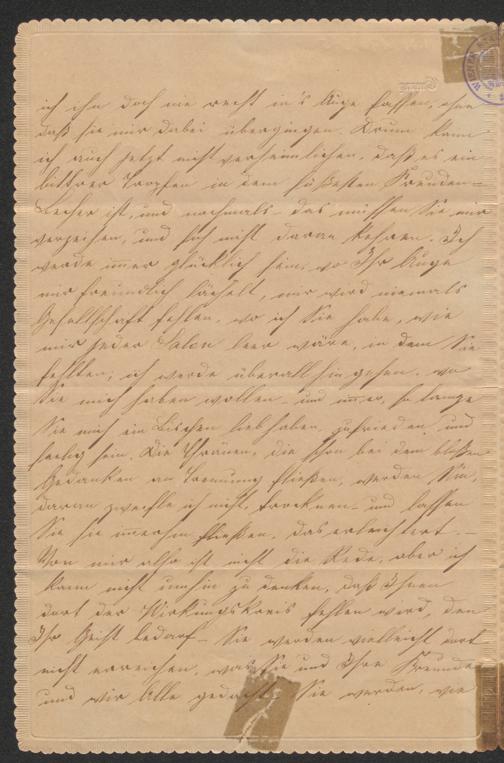 ich ihn doch nie recht in's Auge fassen, ohne
daß sie mir dabei übergingen. Drum kann
ich auch jetzt nicht verheimlichen, daß es ein
bittrer Tropfen in dem süßesten Freuden-
Becher ist, und nochmals – das müssen Sie mir
verzeihen, und sich nicht daran kehren. Ich
werde immer glücklich sein, wo Ihr Auge
mir freundlich lächelt, mir wird niemals
Gesellschaft fehlen, wo ich Sie habe, wie
mir jeder Salon leer wäre, in dem Sie
fehlten; ich werde überall hin gehen, wo
Sie mich haben wollen – und immer, so lange
Sie mich ein Bischen liebhaben, zufrieden und
seelig sein. Die Thränen, die schon bei dem bloßen
Gedanken an Trennung fließen, werden Sie,
daran zweifle ich nicht, trocknen – und lassen
Sie sie immerhin fließen, das erleichtert. –
Von mir also ist nicht die Rede, aber ich
kann nicht umhin zu denken, daß Ihnen
dort der Wirkungskreis fehlen wird, den
Ihr Geist bedarf – Sie werden vielleicht dort
nicht erreichen, was Sie und Ihre Freunde
und wir Alle gedacht. Sie werden, wie
WIENER